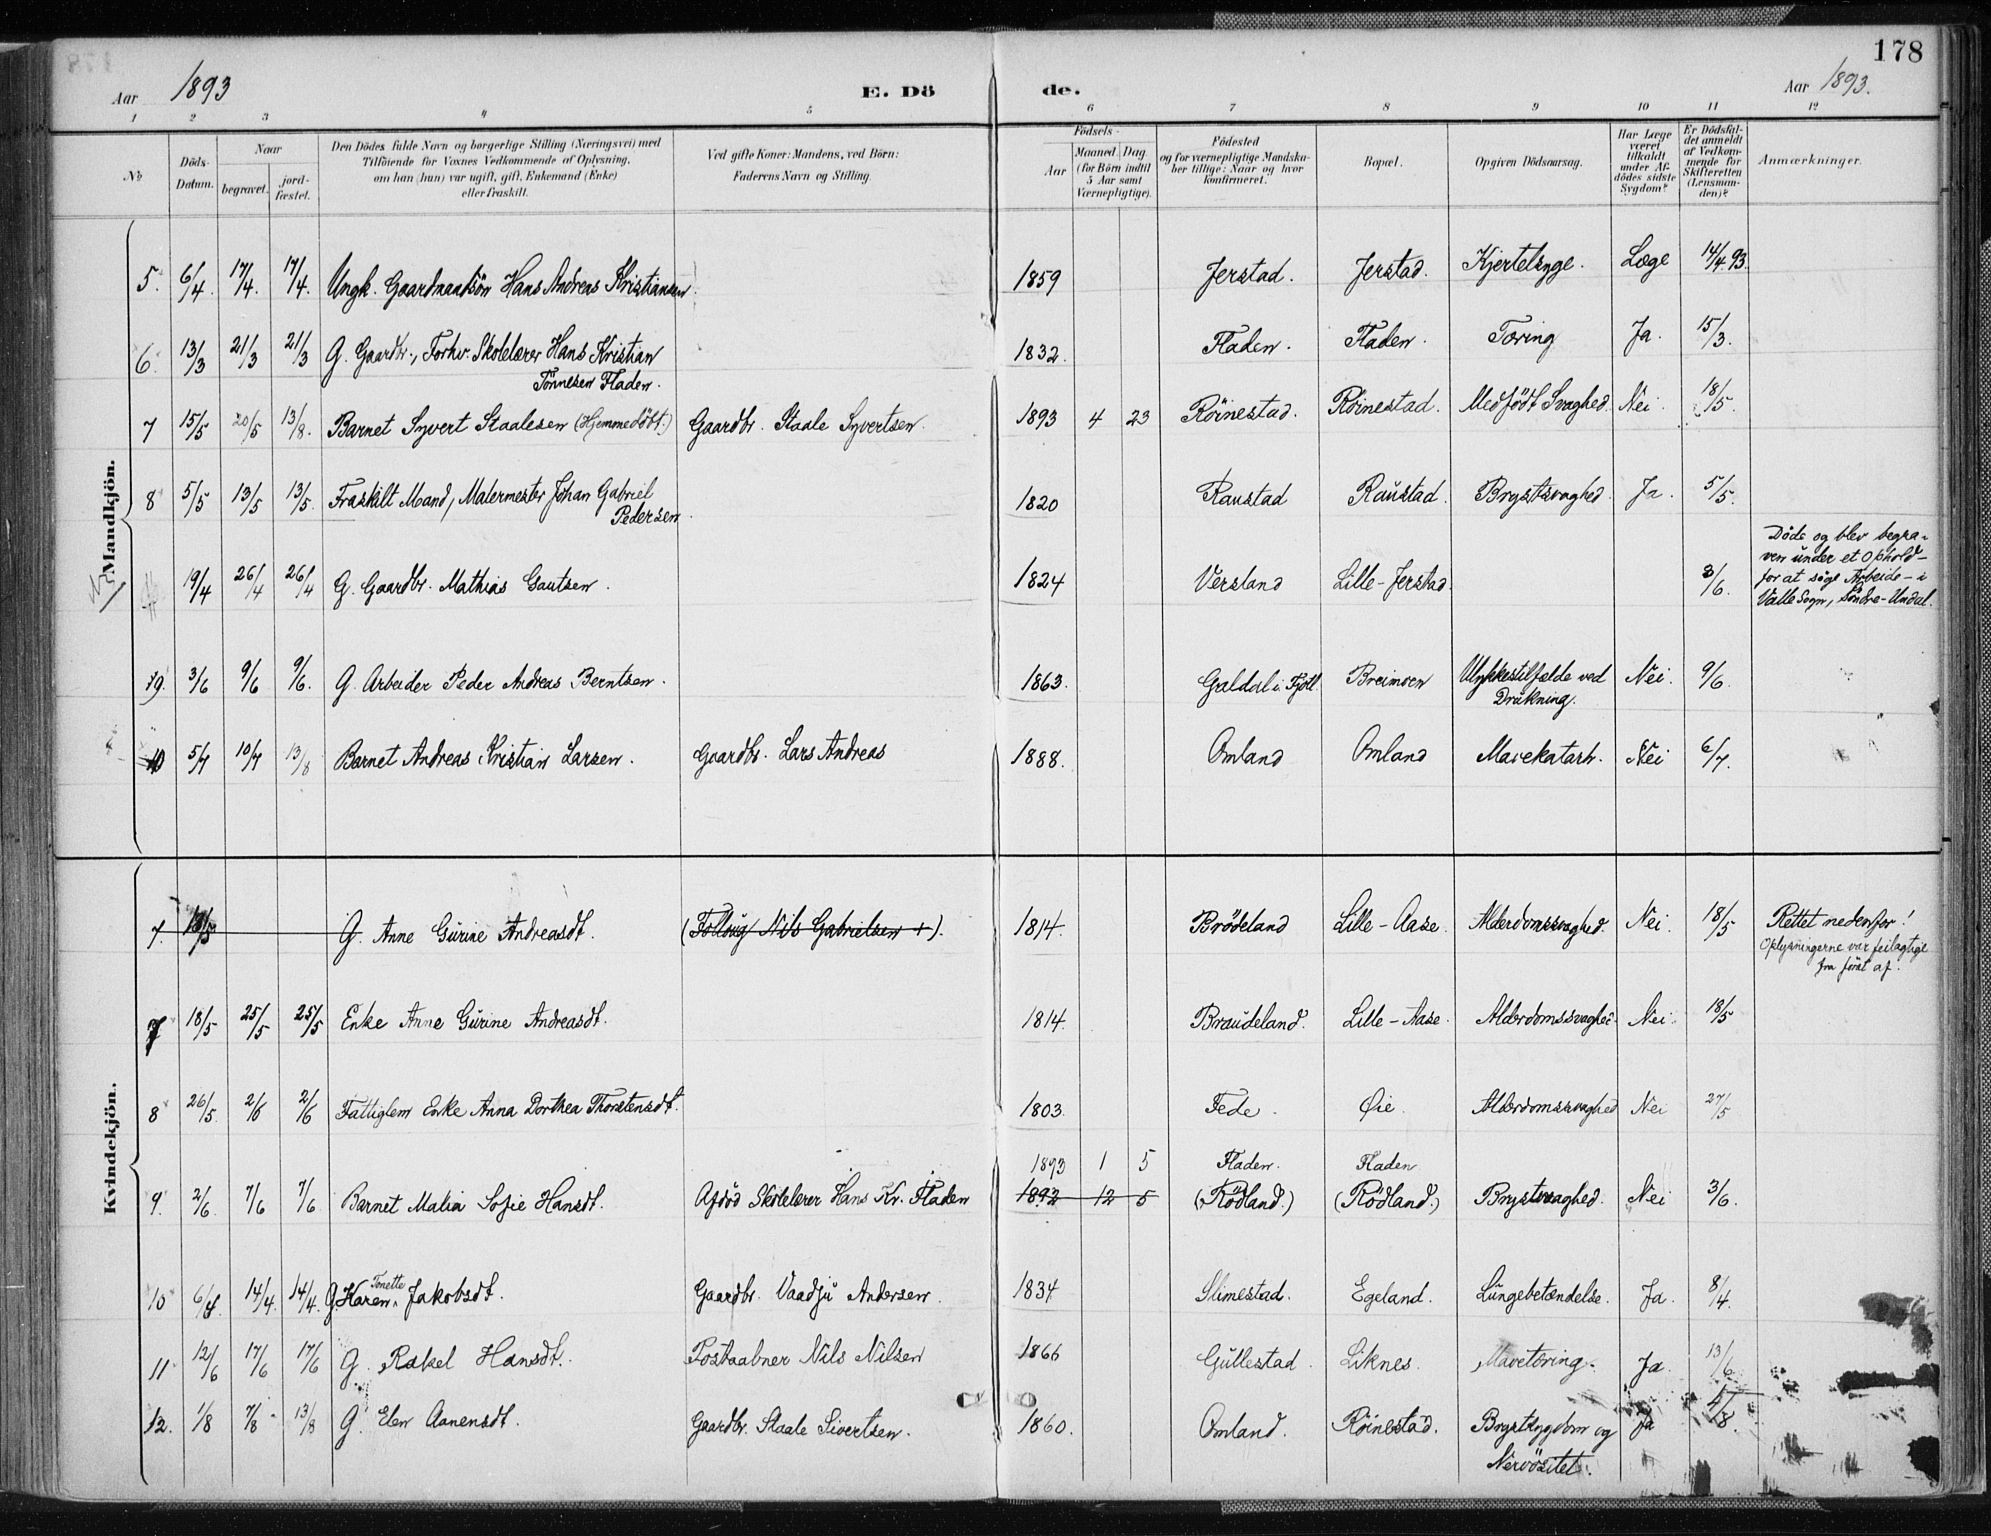 178
Aar 1893 E. Dö de. Aar 1893.
1 2 3 4 5 6 7 8 9 10 11 12
No Döds-Datum. Naar begravet. jordfæstet. Den Dödes fulde Navn og borgerlige Stilling (Næringsvei) med Tilföiende for Voxnes Vedkommende af Oplysning, om han (hun) var ugift, gift, Enkemand (Enke) eller fraskilt. Ved gifte Koner: Mandens, ved Börn: Faderens Navn og Stilling. Födsels- Aar Maaned. Dag (for Börn indtil 5 Aar samt Værnepligtige). Födested og for værnepligtige Mandskaber tillige: Naar og hvor konfirmeret. Bopæl. Opgiven Dödsaarsag. Har Læge været tilkaldt under Afdödes sidste Sygdom? Er Dödsfaldet anmeldt af Vedkommende for Skifteretten (Lensmanden)? Anmærkninger.
Mandkjön.
5. 6/4 17/4. 17/4. Ungk. Gaardmandsön Hans Andreas Kristiansen. 1859 Jerstad. Jerstad. Kjertelsyge. Læge 14/4 93.
6. 13/3 21/3 21/3 G. Gaardbr., Forhv. Skolelærer Hans Kristian 1832. Fladen. Fladen. Tæring Ja. 15/3.
Tönnesen Fladen.
7 15/5 20/5 13/8. Barnet Syvert Staalesen (Hjemmedöbt.) Gaardbr. Staale Syvertsen. 1893 4 23 Röinestad. Röinestad. Medfödt Svaghed. Nei. 18/5.
8 5/5 13/5 13/5. Fraskilt Mand, Malermester Johan Gabriel 1820 Raustad Raustad. Brystsvaghed. Ja. 5/5.
Pedersen.
19/4 26/4 26/4 G. Gaardbr. Mathias Gautsen. 1824 Versland Lille-Jerstad. 3/6. Döde og blev begra-
ven under et Ophold-
for at söge Arbeide - i
Valle Sogn, Söndre-Undal.
9. 3/6 9/6 9/6. G. Arbeider Peder Andreas Berntsen. 1863. Galdal i Fjotl. Breimoen Ulykkestilfælde ved Nei. 9/6.
Drukning.
10 5/7 10/7 13/8 Barnet Andreas Kristian Larsen. Gaardbr. Lars Andreas 1888. Omland Omland Mavekatarh. Nei 6/7.
Kvindekjön.
7. 18/5 G. Anne Gurine Andreasdt. (Nils Gabrielsen +). 1814. Brödeland Lille-Aase. Alderdomssvaghed. Nei. 18/5 Rettet nedenfor!
Oplysningerne var feilagtige
fra först af.
7 18/5 25/5 25/5 Enke Anne Gurine Andreasdt. 1814. Braudeland. Lille-Aase. Alderdomssvaghed. Nei. 18/5
8 26/5. 2/6 2/6 Fattiglem Enke Anna Dorthea Thorstensdt. 1803. Fede. Øie. Alderdomssvaghed Nei 27/5
1893 1 5 Fladen. Fladen
9. 2/6. 7/6 7/6 Barnet Malia Sofie Hansdt. Afdöd Skolelærer Hans Kr. Fladen 1892 12 5 (Rödland.) (Rödland.) Brystsvaghed. Nei 3/6.
10 6/4. 14/4. 14/4. G. Karen Tonette Jakobsdt. Gaardbr. Vaadju Andersen. 1834 Slimestad. Egeland. Lungebetændelse. Ja. 8/4.
11 12/6 17/6 17/6 G. Rakel Hansdt. Postaabner Nils Nilsen 1866 Gullestad. Liknes. Mavetæring. Ja. 13/6.
12. 1/8 7/8 13/8 G. Elen Aanensdt. Gaardbr. Staale Sivertsen. 1860. Omland. Röinestad. Brystsygdom og Ja 4/8.
Nervösitet.